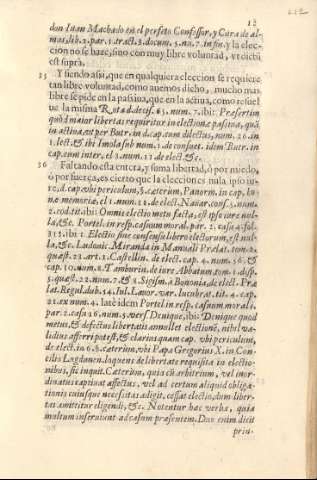 12
212
don Iuan Machado en el perfeto Confessor, y Cura de al-
mas, lib. 2. par. 5. tract. 3. docum. 5. nu. 7. in fin. y la elec-
cion no se haze, sino con muy libre voluntad, vt dictũ
est suprà.
25 Y siendo assi, que en qualquiera eleccion se requiere
tan libre voluntad, como auemos dicho, mucho mas
libre se pide en la passiua, que en la actiua, como resuel
ue la misma Rota d. decis. 65. num. 7. ibi: Præsertim
quòd maior libertas requiritur in electione passiua, quã
in actiua, est per Butr. in d. cap. cum dilectus, num. 26. in
1. lect. & ibi Imola sub num. 2. de consuet. idem Butr. in
cap. cum inter. el 3. num. 12. de elect. &c.
26 Faltando esta entera, y suma libertad, ò por miedo,
ò por fuerça, es cierto que la elecciones nula ipso iu-
re, d. cap. vbi periculum, §. cæterum, Panorm. in cap. bo-
næ memoriæ, el 1. num. 11. de elect. Nauar. cons. 5. num.
2. eod. tit. ibi: Omnis electio metu facta, est ipso iure nul-
la, &c. Portel. in resp. casuum moral. par. 2. casu 4. fol.
313. ibi: Electio sine consensu libero electorum, est nul-
la, &c. Ludouic. Miranda in Manuali Prælat. tom. 2.
quæst. 23. art. 1. Castellin. de elect. cap. 4. num. 56. &
cap. 10. num. 2. Tamburin. de iure Abbatum tom. 1. disp.
5. quæst. 22. num. 7. & 8. Sigism. à Bononia, de elect. Præ
lat. Regul. dub. 54. Iul. Lauor. var. lucubrat. tit. 4. cap.
21. ex num. 4. latè idem Portel in resp. casuum moral.
par. 2. casu 16. num. 5. vers. Denique, ibi: Denique quod
metus, & defectus libertatis annullet electionẽ, nihil va-
lidius afferri potest, & clarius quam cap. vbi periculum,
de elect. in 6. §. cæterùm, vbi Papa Gregorius X. in Con-
cilio Lugdunen. loquens de libertate requisita in electio-
nibus, sic inquit. Cæterùm, quia ců arbitrium, vel inor-
dinatus captiuat affectus, vel ad certum aliquid obliga-
tionis cuiusque necessitas adigit, cessat electio, dum liber-
tas amittitur eligendi, &c. Notentur hæc verba, quia
multum inseruiunt ad casum præsentem. Duo enim dicit
prin-